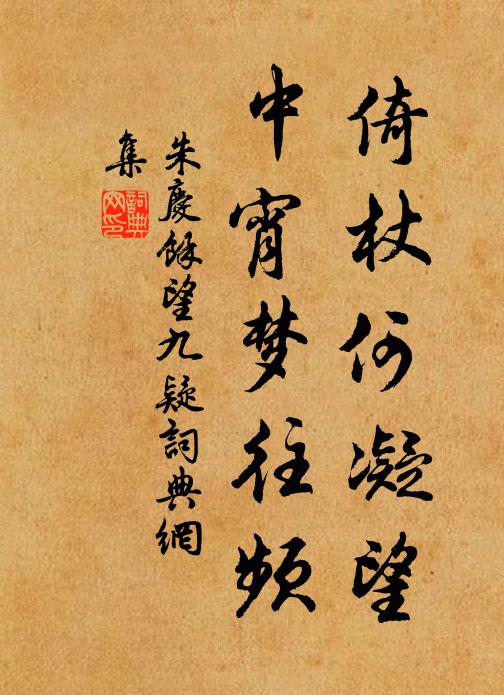 倚杖何凝望
中宵梦往频
朱慶餘望九疑詞典網
集
詞典
网印